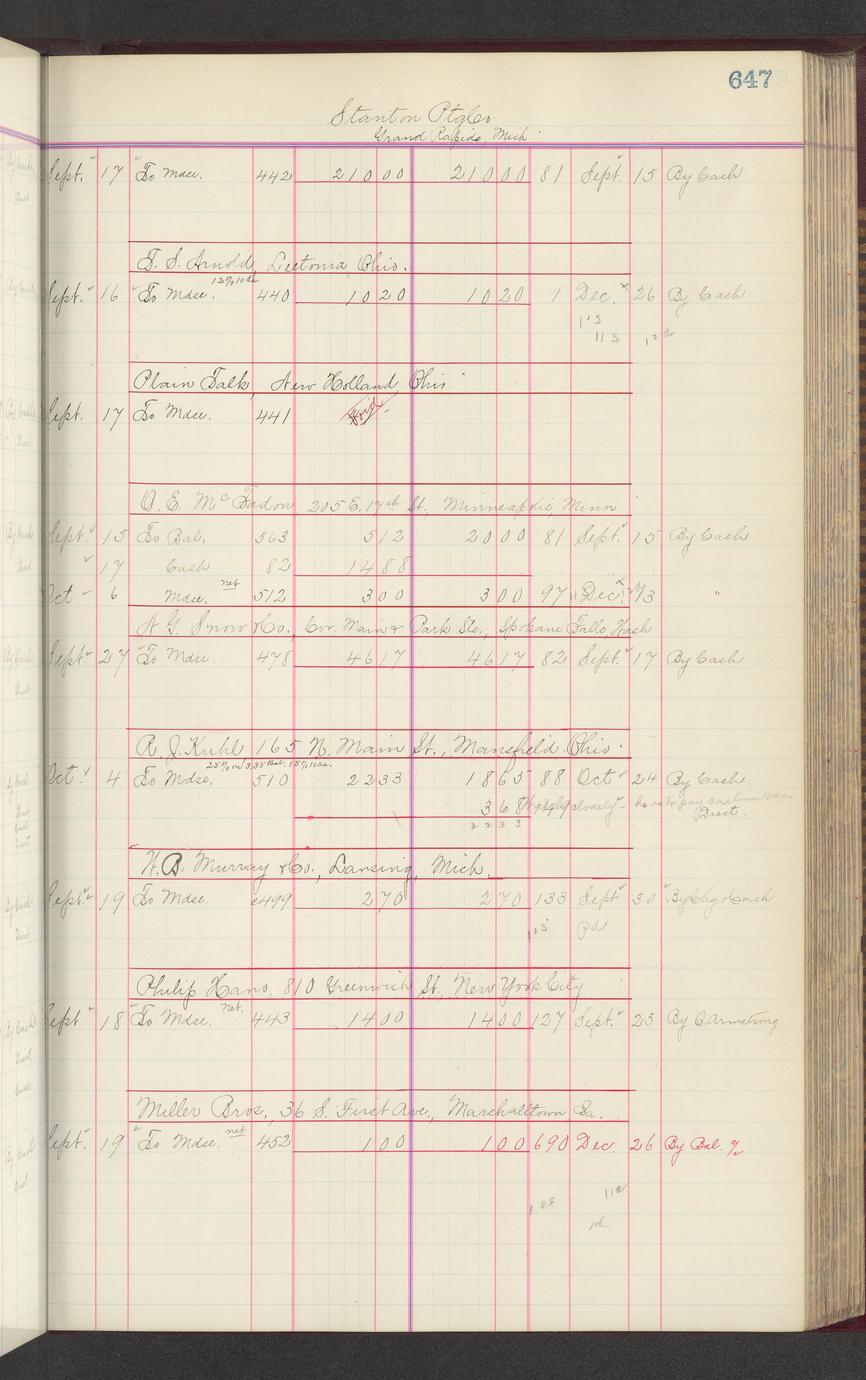 647
Stanton Ptg Co.
Grand Rapids, Mich
Sept. 17 To Mdse. 442 210 00 210 00 81 Sept. 15 By Cash
T. S. Arnold, Leetonia, Ohio.
Sept. 16 To Mdse. 440 10 20 10 20 1 Dec. 26 By Cash
Plain Talk, New Holland Ohio
Sept. 17 To Mdse. 441 Void
O. E. McFadon, 205 E. 17th St., Minneapolis, Minn
Sept. 15 To Bal. 563 5 12 20 00 81 Sept. 15 By Cash
17 Cash 82 14 88
Oct 6 Mdse. net 512 3 00 3 00 97 Dec. 13 "
Snow & Co., Cor. Main & Park Sts., Spokane Falls, Wash
Sept 27 To Mdse 478 46 17 46 17 82 Sept. 17 By Cash
R. J. Kuhl 165 N. Main St., Mansfield Ohio.
25% on 3.35 Bal. 15% 10 da.
Oct. 4 To Mdse. 510 22 33 18 65 88 Oct 24 By Cash
3 68 closely
22 33 Disct.
Murray & Co., Lansing, Mich.
Sept. 19 To Mdse. 499 2 70 2 70 133 Sept 30 By Chg & Cash
Pd
Philip Hano, 810 Greenwich St., New York City
Sept 18 To Mdse. net. 443 14 00 14 00 127 Sept. 25 By C. Armstrong
Miller Bros., 36 S. First Ave., Marshalltown, Ia.
Sept. 19 To Mdse. net 452 1 00 1 00 690 Dec. 26 By Bal. %